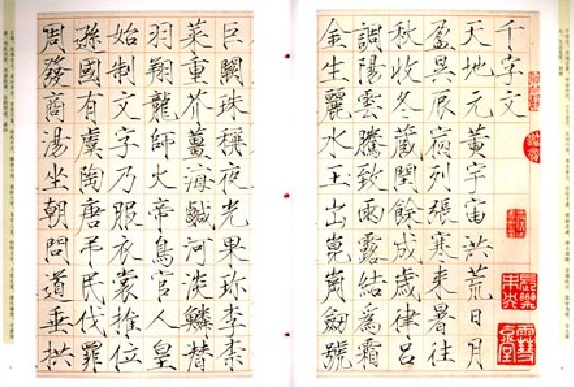 千字文
天地元黃宇宙洪荒日月
盈昃辰宿列張寒来暑往
秋收冬蔵閏餘成歲律呂
調陽雲騰致雨露結爲霜
金生麗水玉出崑崗劔號
巨闕珠稱夜光果珎李柰
菜重芥薑海鹹河淡鱗潛
羽翔龍師火帝鳥官人皇
始制文字乃服衣裳推位
遜國有虞陶唐弔民伐罪
周發商湯坐朝問道垂拱